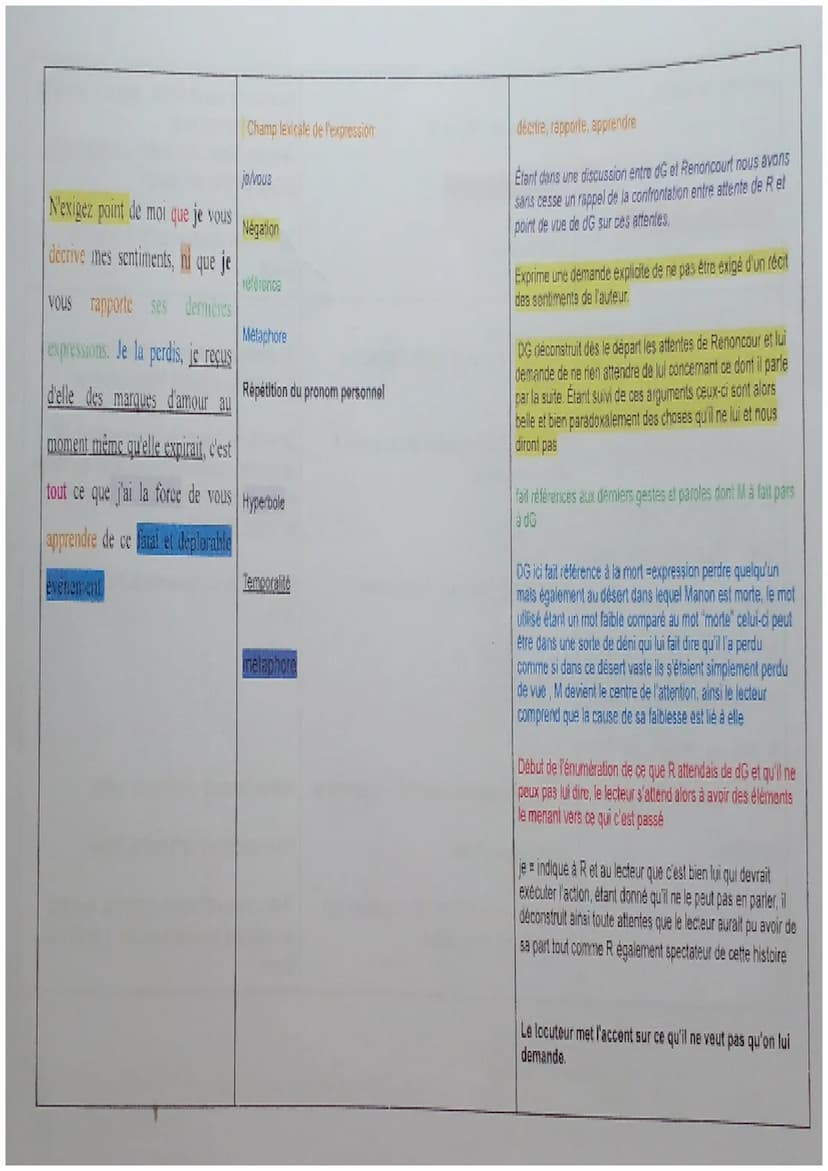 N'exigez point de moi que je vous
décrive mes sentiments, ni que je
vous rapporte ses dernières
expressions. Je la perdis, je reçus
d'elle des marques d'amour au
moment même qu'elle expirait, c'est
tout ce que j'ai la force de vous
apprendre de ce fatal et déplorable
événement.
Champ lexicale de l'expression
je/vous
Négation
référence
Métaphore
Répétition du pronom personnel
Hyperbole
Temporalité
métaphore
décrire, rapporte, apprendre
Étant dans une discussion entre dG et Renoncourt nous avons
sans cesse un rappel de la confrontation entre attente de R et
point de vue de dG sur ces attentes.
Exprime une demande explicite de ne pas être exigé d'un récit
des sentiments de l'auteur.
DG déconstruit dès le départ les attentes de Renoncour et lui
demande de ne rien attendre de lui concernant ce dont il parle
par la suite. Étant suivi de ces arguments ceux-ci sont alors
belle et bien paradoxalement des choses qu'il ne lui et nous
diront pas
fait références aux derniers gestes et paroles dont M à fait pars
à dG
DG ici fait référence à la mort =expression perdre quelqu'un
mais également au désert dans lequel Manon est morte, le mot
utilisé étant un mot faible comparé au mot "morte" celui-ci peut
être dans une sorte de déni qui lui fait dire qu'il l'a perdu
comme si dans ce désert vaste ils s'étaient simplement perdu
de vue , M devient le centre de l'attention, ainsi le lecteur
comprend que la cause de sa faiblesse est lié à elle
Début de l'énumération de ce que R attendais de dG et qu'il ne
peux pas lui dire, le lecteur s'attend alors à avoir des éléments
le menant vers ce qui c'est passé
je = indique à R et au lecteur que c'est bien lui qui devrait
exécuter l'action, étant donné qu'il ne le peut pas en parler, il
déconstruit ainsi toute attentes que le lecteur aurait pu avoir de
sa part tout comme R également spectateur de cette histoire
Le locuteur met l'accent sur ce qu'il ne veut pas qu'on lui
demande.